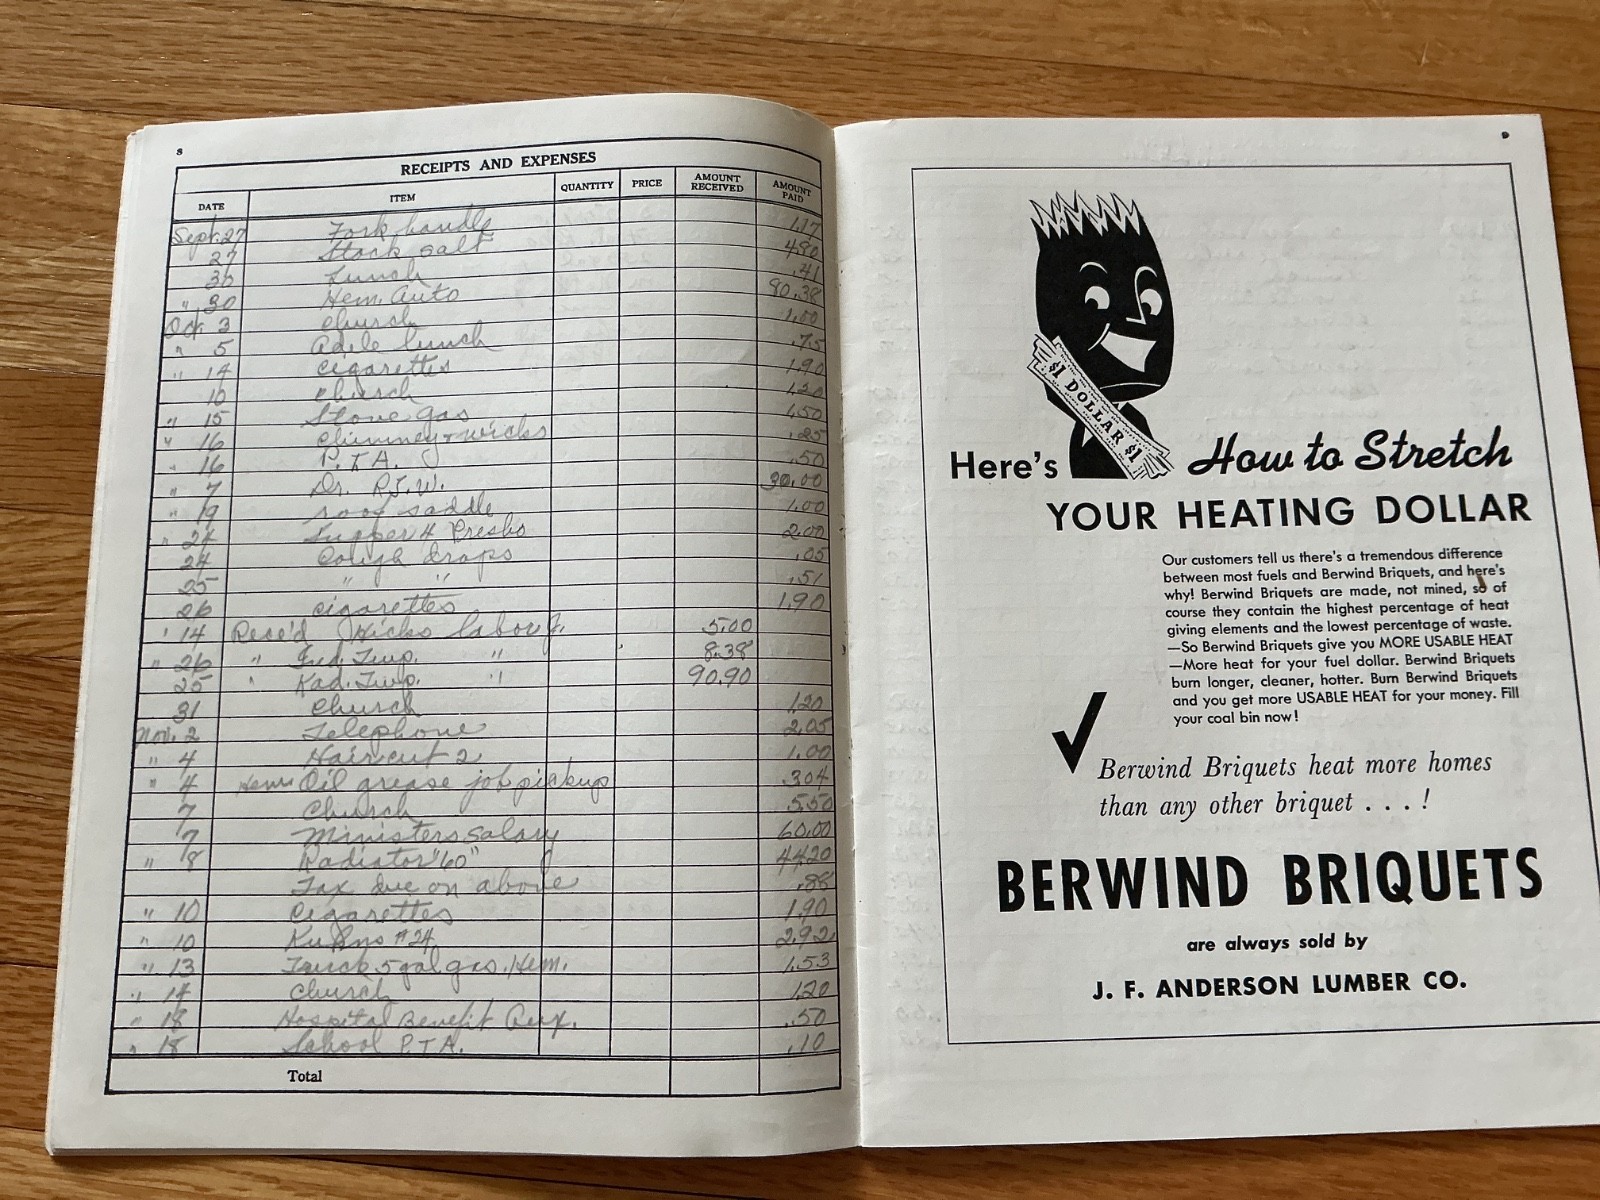 8
RECEIPTS AND EXPENSES
DATE ITEM QUANTITY PRICE AMOUNT RECEIVED AMOUNT PAID
Sept. 27 Fork handle 1.17
27 Stock salt 4.80
30 Lunch .41
" 30 Hem. Auto 90.38
Oct. 3 Church 1.00
" 5 lunch .75
" 14 Cigarettes 1.90
10 Church 1.20
" 15 Stove gas 1.50
" 16 Chimney + wicks .25
" 16 P.T.A. .50
" 7 Dr. R.J.W. 30.00
" 19 saddle 1.00
" 24 Supper Presbs 2.00
24 Cough drops .05
25 " " .51
26 cigarettes 1.90
' 14 Rece'd Hicks labor 5.00
" 26 " Imp. " 8.38
25 " Rad. Imp. " 90.90
31 Church 1.20
Nov. 2 Telephone 2.05
" 4 Haircut 2 1.00
" 4 Oil grease job pickup 3.04
7 Church 5.50
7 Ministers salary 60.00
" 8 Radiator "60" 44.20
Tax due on above .88
" 10 Cigarettes 1.90
" 10 #24 2.92
" 13 Truck 5 gal gas. Hem. 1.53
" 14 Church 1.20
" 18 Hospital Benefit Aux. .50
" 18 School P.T.A. .10
Total
9
$1 DOLLAR $1
Here's How to Stretch
YOUR HEATING DOLLAR
Our customers tell us there's a tremendous difference
between most fuels and Berwind Briquets, and here's
why! Berwind Briquets are made, not mined, so of
course they contain the highest percentage of heat
giving elements and the lowest percentage of waste.
—So Berwind Briquets give you MORE USABLE HEAT
—More heat for your fuel dollar. Berwind Briquets
burn longer, cleaner, hotter. Burn Berwind Briquets
and you get more USABLE HEAT for your money. Fill
your coal bin now!
Berwind Briquets heat more homes
than any other briquet . . . !
BERWIND BRIQUETS
are always sold by
J. F. ANDERSON LUMBER CO.